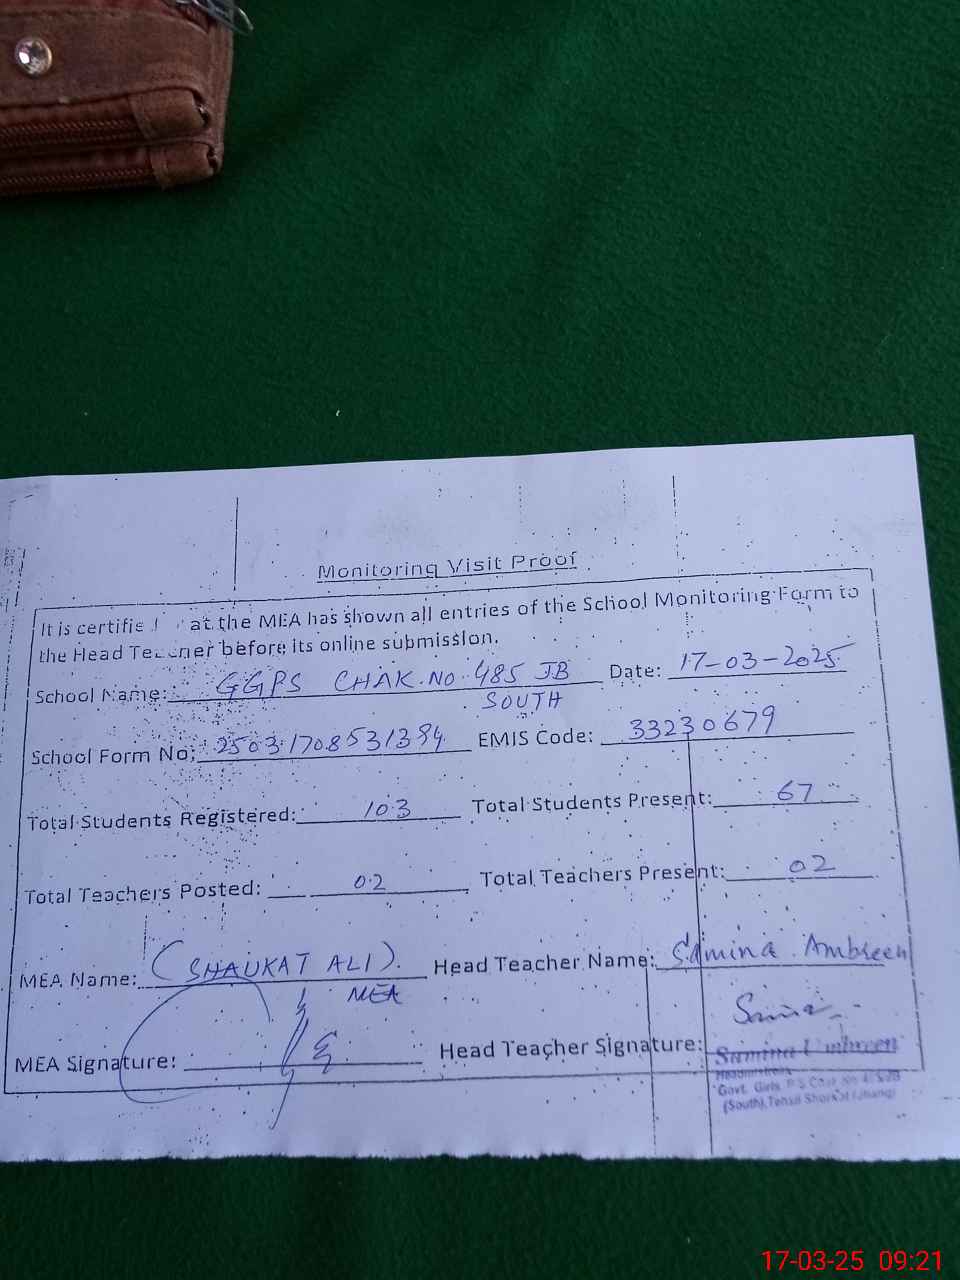 Monitoring Visit Proof
It is certified that the MEA has shown all entries of the School Monitoring Form to
the Head Teacher before its online submission.
School Name: GGPS CHAK.NO.485 JB SOUTH Date: 17-03-2025
School Form No: 250317085313 EMIS Code: 33230679
Total Students Registered: 103 Total Students Present: 67
Total Teachers Posted: 02 Total Teachers Present: 02
MEA Name: (SHAUKAT ALI). MEA Head Teacher Name: Samina Ambreen
MEA Signature: Head Teacher Signature:
Samina Ambreen
Headmistress
Govt. Girls P/S Chak No 485JB
(South),Tehsil Shorkot (Jhang)
17-03-25 09:21